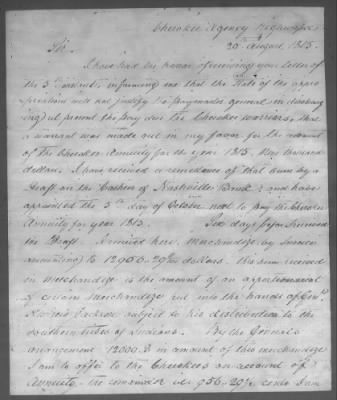 Cherokee Agency Highwassee
20th August 1815.
Sir.
I have had the honor of receiving your letter of
the 3d instant informing me that the State of the appro
priations will not justify the paymaster general in discharg
ing at present the pay due the Cherokee warriors, that
a warrant was made out in my favor for the amount
of the Cherokee Annuity for the year 1815, Nine thousand
dollars. I have received a remittance of that sum by a
draft on the Cashier of Nashville Bank; and have
appointed the 5th day of October next to pay the Cherokee
Annuity for year 1815. Six days before I received
the Draft. Arrived here, Merchandize by Invoice
amounting to 12956.29 dollars. The sum received
in Merchandize is the amount of an apportionment
of certain Merchandize put into the hands of Genl
Jackson subject to his distribution to the
Southern tribes of Indians. By the Generals
arrangement 12000.$ in amount of this merchandize
I am to offer to the Cherokees on account of
Annuity - the remainder viz 956-29 cents I am